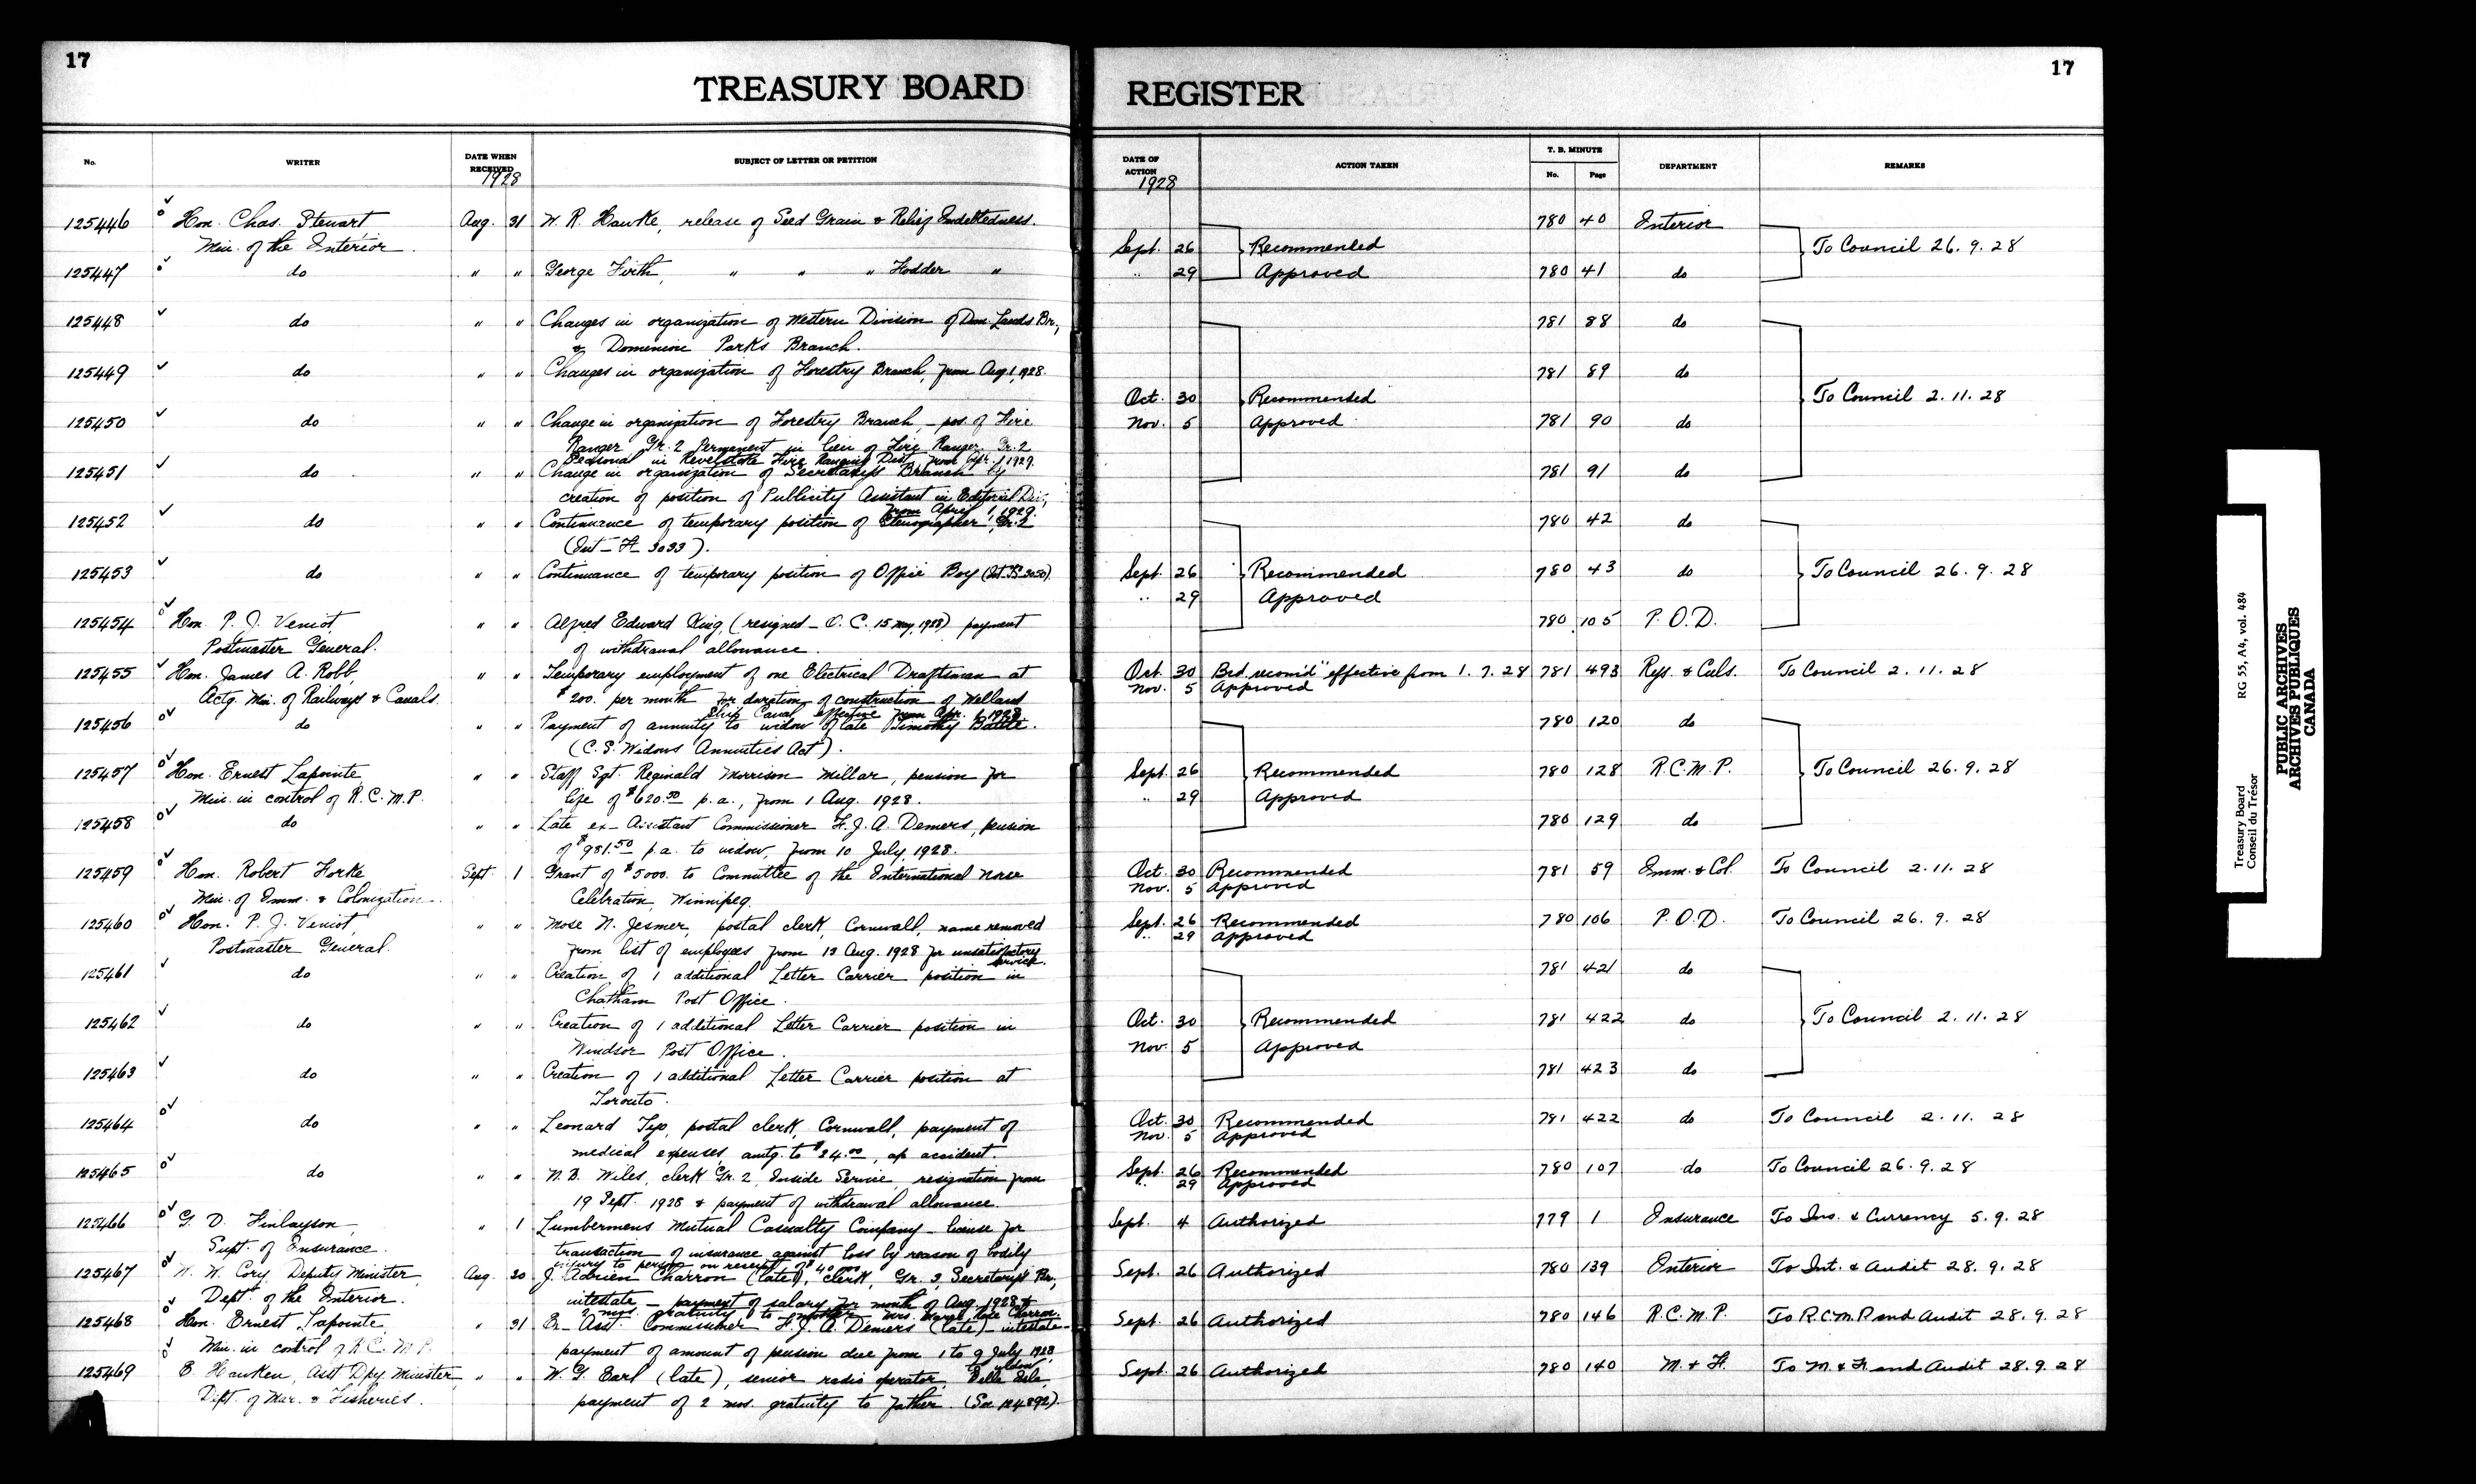 17
TREASURY BOARD
No.
WRITER
DATE WHEN RECEIVED
1928
SUBJECT OF LETTER OR PETITION
125446 Hon. Chas. Stewart Aug. 31 W. R. Hawke, release of Seed Grain & Relief Indebtedness.
Min. of the Interior.
125447 do " " George Firth, " " " Fodder "
125448 do " " Changes in organization of Western Division of Dom. Lands Br.,
& Dominion Parks Branch.
125449 do " " Changes in organization of Forestry Branch, from Aug 1, 1928.
125450 do " " Change in organization of Forestry Branch, - pos. of Fire
Ranger Gr. 2 Permanent in lieu of Fire Ranger Gr. 2
Seasonal in Revelstoke Fire Ranging Dist. from Sept. 1, 1929.
125451 do " " Change in organization of Secretary's Branch by
creation of position of Publicity Assistant in Editorial Div.,
from April 1, 1929.
125452 do " " Continuance of temporary position of Stenographer, Gr. 2
(Int - H- 3033).
125453 do " " Continuance of temporary position of Office Boy (Int 3050).
125454 Hon. P. J. Veniot, " " Alfred Edward King, (resigned - O. C. 15 May, 1928) payment
Postmaster General. of withdrawal allowance.
125455 Hon. James A. Robb, " " Temporary employment of one Electrical Draftsman at
Actg. Min. of Railways & Canals. $200. per month for duration of construction of Welland
Ship Canal effective from Apr. 1, 1928
125456 do " " Payment of annuity to widow of late Timothy Battle.
(C. S. Widows Annuities Act).
125457 Hon. Ernest Lapointe, " " Staff Sgt. Reginald Morrison Millar, pension for
Min. in control of R. C. M. P. life of $620.50 p. a., from 1 Aug. 1928.
125458 do " " Late ex-Assistant Commissioner F. J. A. Demers, pension
of $981.50 p. a. to widow, from 10 July, 1928.
125459 Hon. Robert Forke Sept. 1 Grant of $5000. to Committee of the International Norse
Min. of Imm. & Colonization. Celebration, Winnipeg.
125460 Hon. P. J. Veniot, " " Mose N. Jesmer, postal clerk, Cornwall, name removed
Postmaster General. from list of employees from 13 Aug. 1928 for unsatisfactory
service.
125461 do " " Creation of 1 additional Letter Carrier position in
Chatham Post Office.
125462 do " " Creation of 1 additional Letter Carrier position in
Windsor Post Office.
125463 do " " Creation of 1 additional Letter Carrier position at
Toronto.
125464 do " " Leonard Tyo, postal clerk, Cornwall, payment of
medical expenses, amtg. to $24.00, ap accident.
125465 do " " N. B. Wiles, clerk Gr. 2, Inside Service, resignation from
19 Sept. 1928 & payment of withdrawal allowance.
125466 G. D. Finlayson " 1 Lumbermens Mutual Casualty Company - license for
Supt. of Insurance. transaction of insurance against loss by reason of bodily
injury to person on receipt of $40,000
125467 W. W. Cory, Deputy Minister, Aug. 30 J. Adrien Charron (late), clerk, Gr. 3, Secretary's Br.,
Dept. of the Interior. intestate - payment of salary for month of Aug. 1928 &
2 mos. gratuity to mother Mrs. Charron.
125468 Hon. Ernest Lapointe, " 31 Ex-Asst. Commissioner F. J. A. Demers (late) - intestate -
Min. in control of R. C. M. P. payment of amount of pension due from 1 to 9 July 1928
to widow.
125469 E. Hawken, Asst Dpy. Minister " " W. G. Earl (late), senior radio operator, Belle Isle,
Dept. of Mar. & Fisheries. payment of 2 mos. gratuity to father. (See 124892).
REGISTER
17
DATE OF ACTION
1928
ACTION TAKEN
T. B. MINUTE
No. Page
DEPARTMENT
REMARKS
780 40 Interior
Sept. 26 Recommended To Council 26. 9. 28
" 29 Approved 780 41 do
781 88 do
781 89 do
Oct. 30 Recommended To Council 2. 11. 28
Nov. 5 Approved 781 90 do
781 91 do
780 42 do
Sept. 26 Recommended 780 43 do To Council 26. 9. 28
" 29 Approved
780 105 P. O. D.
Oct. 30 Brd. recom'd "effective from 1. 7. 28 781 493 Rys. & Cals. To Council 2. 11. 28
Nov. 5 Approved
780 120 do
Sept. 26 Recommended 780 128 R. C. M. P. To Council 26. 9. 28
" 29 Approved
780 129 do
Oct. 30 Recommended 781 59 Imm. & Col. To Council 2. 11. 28
Nov. 5 Approved
Sept. 26 Recommended 780 106 P. O. D. To Council 26. 9. 28
" 29 Approved
781 421 do
Oct. 30 Recommended 781 422 do To Council 2. 11. 28
Nov. 5 Approved
781 423 do
Oct. 30 Recommended 781 422 do To Council 2. 11. 28
Nov. 5 Approved
Sept. 26 Recommended 780 107 do To Council 26. 9. 28
" 29 Approved
Sept. 4 Authorized 779 1 Insurance To Ins. & Currency 5. 9. 28
Sept. 26 Authorized 780 139 Interior To Int. & Audit 28. 9. 28
Sept. 26 Authorized 780 146 R. C. M. P. To R.C.M.P. and Audit 28. 9. 28
Sept. 26 Authorized 780 140 M. & F. To M. & F. and Audit 28. 9. 28
Treasury Board
Conseil du Trésor
RG 55, A4, vol. 484
PUBLIC ARCHIVES
ARCHIVES PUBLIQUES
CANADA